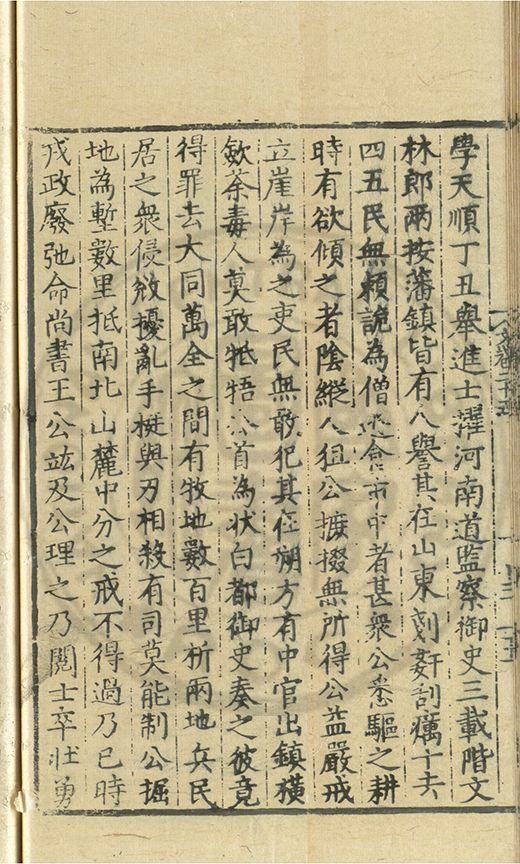 學天順丁丑舉進士擢河南道監察御史三載階文
林郎兩按藩鎮皆有人譽其在山東刻姧刮癘十去
四五民無賴詭為僧逃食市中者甚衆公悉驅之耕
時有欲傾之者陰縱人狙公摭掇無所得公益嚴戒
立崖岸為之吏民無敢犯其在朔方有中官出鎮橫
歛荼毒人莫敢牴牾公首為狀白都御史奏之彼竟
得罪去大同萬全之間有牧地數百里析兩地兵民
居之衆侵敓擾亂手梃與刃相殺有司莫能制公掘
地為塹數里抵南北山麓中分之戒不得過乃已時
戎政廢弛命尚書王公竑及公理之乃閱士卒壯勇